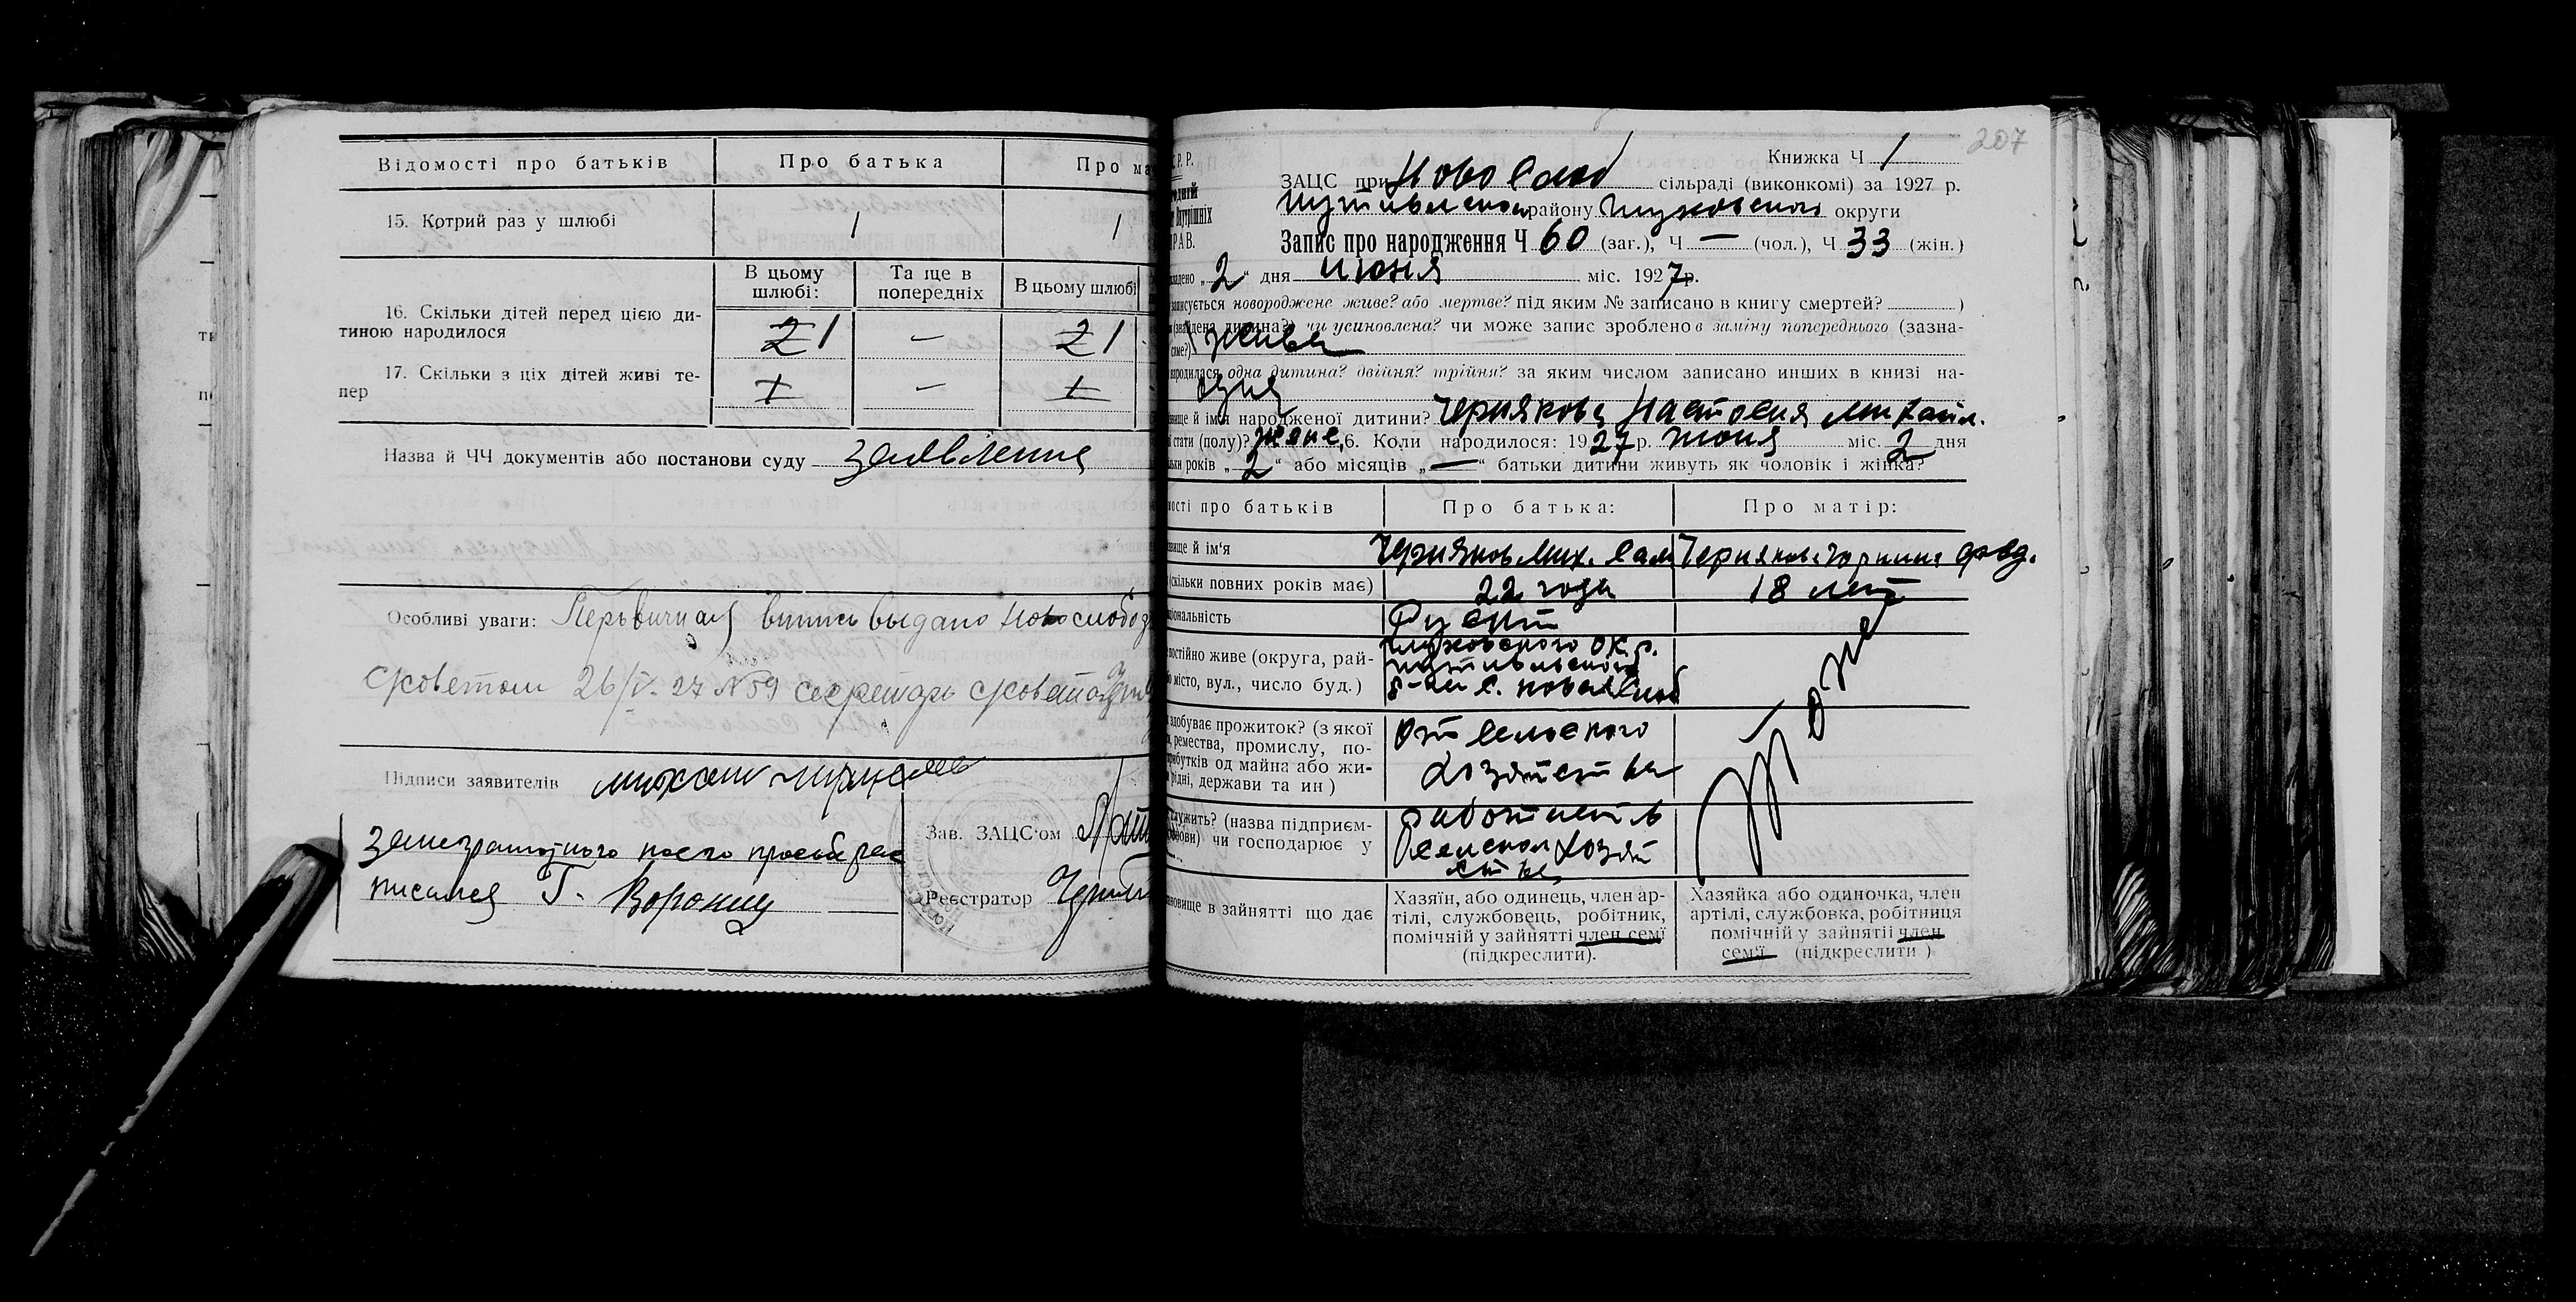 Відомості про батьків
Про батька
Про ма
15. Котрий раз у шлюбі
1
1
В цьому шлюбі:
Та ще в попередніх
В цьому шлюбі
16. Скільки дітей перед цією ди-
тиною народилося
2 1
—
2 1
17. Скільки з ціх дітей живі те-
пер
—
Назва й ЧЧ документів або постанови суду заявление
Особливі уваги: Первичная выпись выдано Новослобод
с/советом 26/V-27 №59 секретарь с/совета
Підписи заявителів
неграмотного по его просьбе рас
писался Г. Воронин
Зав. ЗАЦС'ом
Реєстратор
207
С.Р.Р.
Внутрішніх
ПРАВ.
Книжка Ч 1
ЗАЦС при Новослоб сільраді (виконкомі) за 1927 р.
Путивльского району Глуховского округи
Запис про народження Ч 60 (заг.), Ч — (чол.), Ч 33 (жін.)
кладено „2" дня июня міс. 1927 р.
записується новороджене живе? або мертве? під яким № записано в книгу смертей? )
дитина?) чи усиновлена? чи може запис зроблено в заміну попереднього (зазна-
саме?) живая
народилася одна дитина? двійня? трійня? за яким числом записано инших в книзі на-
одна
вище й ім'я народженої дитини? Чернякова Настосия Михайл.
стати (полу)? женс. 6. Коли народилося: 1927 р. июня міс. 2 дня
льки років „2" або місяців „—" батьки дитини живуть як чоловік і жінка?
ності про батьків
Про батька:
Про матір:
вище й ім'я
Черняков Мих. Сам
Чернякова Февд.
скільки повних років має)
22 года
18 лет
ціональність
Руский
постійно живе (округа, рай-
місто, вул., число буд.)
Глуховского окр.
Путивльского
р-на с. Новая Слоб
здобуває прожиток? (з якої
ремества, промислу, по-
рибутків од майна або жи-
рідні, держави та ин)
От сельского
хозяйства
служить? (назва підприєм-
чи господарює у
работает в
сельском хозяй
стве
новище в зайнятті що дає
Хазяїн, або одинець, член ар-
тілі, службовець, робітник,
помічній у зайнятті член семї
(підкреслити).
Хазяйка або одиночка, член
артілі, службовка, робітниця
помічній у зайнятіі член
семї (підкреслити)